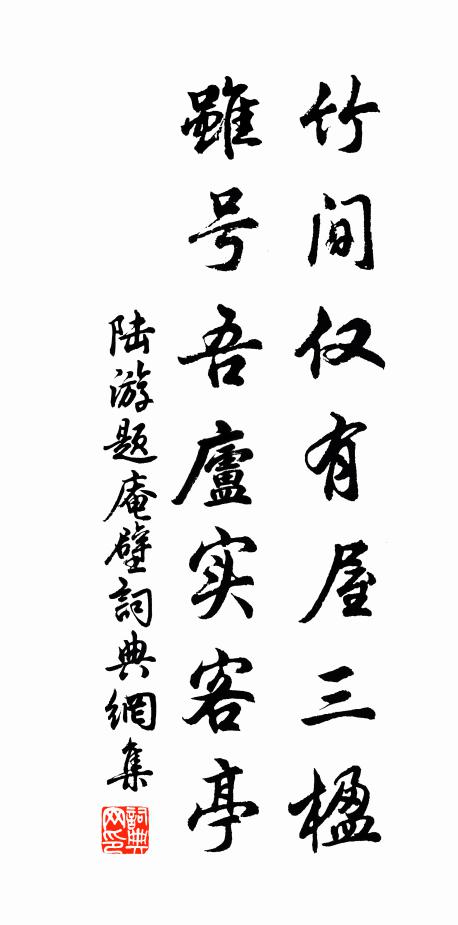 竹间仅有屋三楹
虽号吾廬实客亭
陆游题庵壁詞典網集
詞典网印